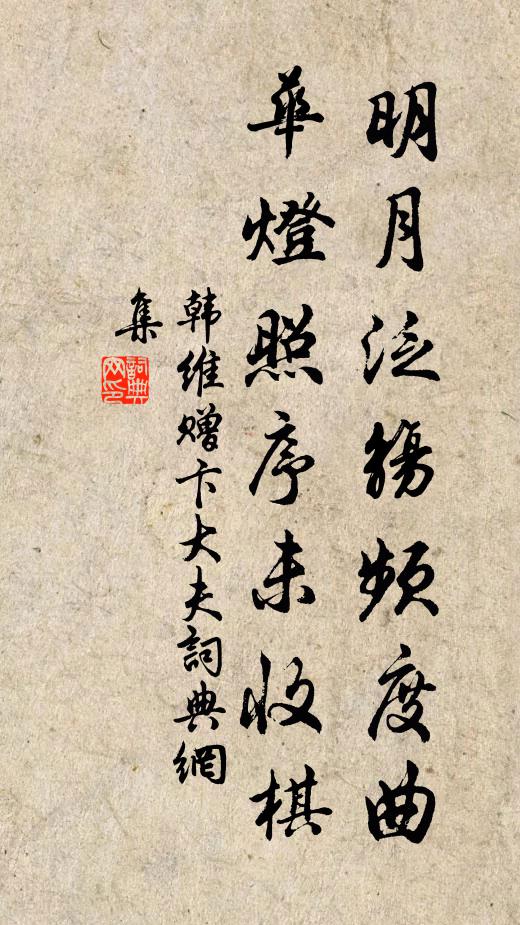 明月泛觴頻度曲
華燈照序未收棋
韩維赠卞大夫詞典網
集
詞典
网印